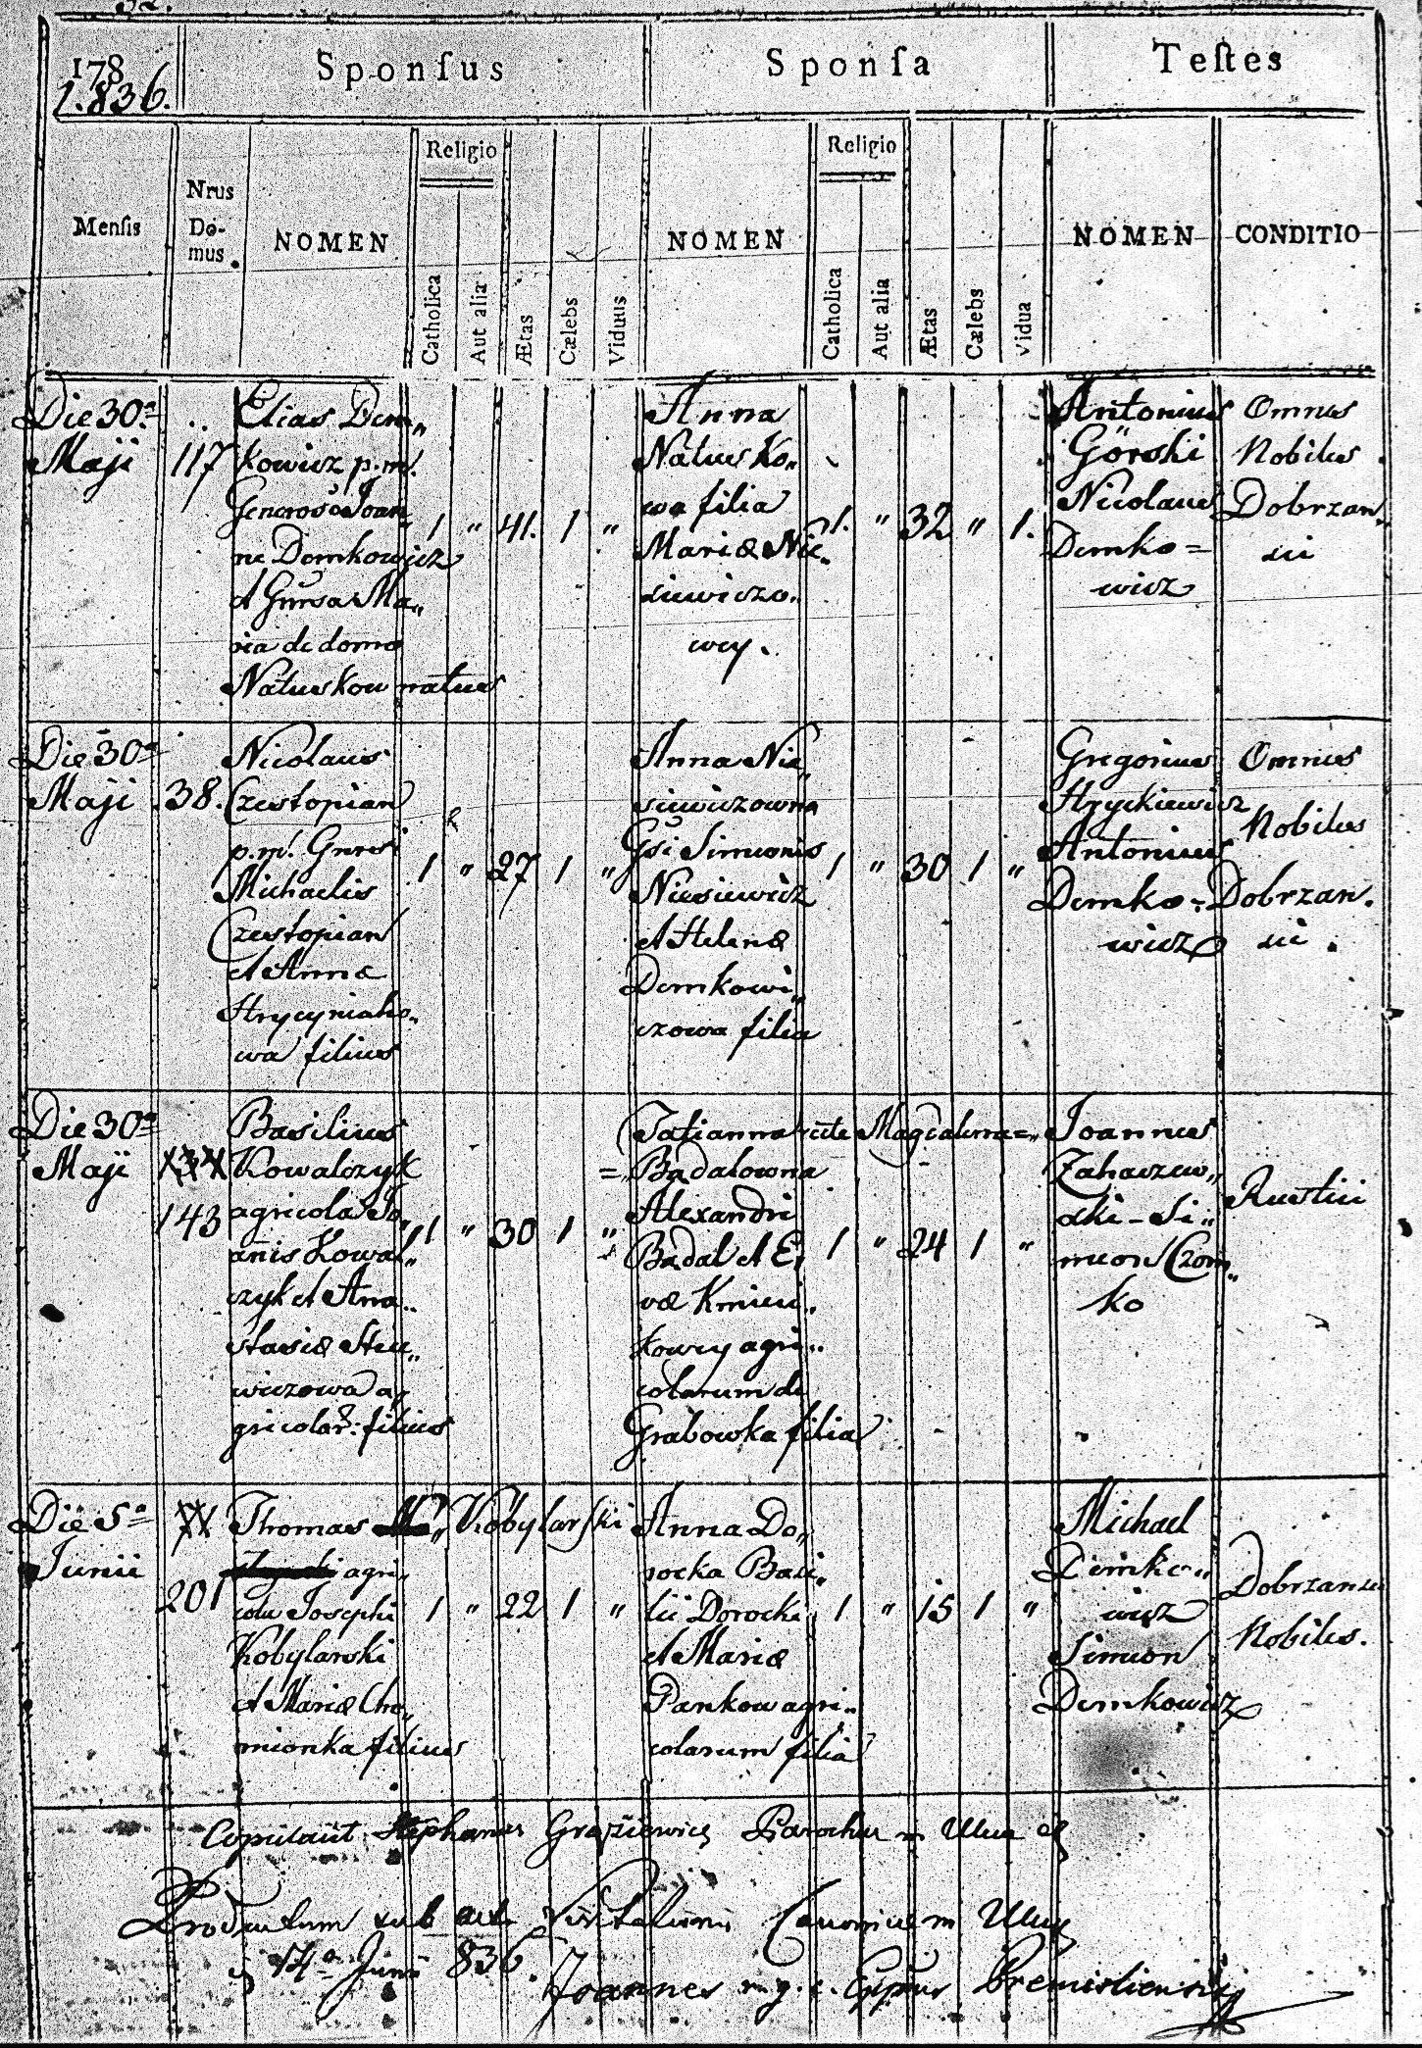 32.
178
1.836.
Sponſus
Sponſa
Teſtes
Menſis
Nrus
Do-
mus.
NOMEN
Religio
Catholica
Aut alia
Ætas
Cælebs
Viduus
NOMEN
Religio
Catholica
Aut alia
Ætas
Cælebs
Vidua
NOMEN
CONDITIO
Die 30a
Maji
117
Elias Dem„
kowicz p.m.
Generoso Joan„
ne Demkowicz
et Gnrsa Ma„
ria de domo
Natuskow natus
1 „ 41. 1 „
Anna
Natusko„
wa filia
Mariæ Nie„
siewiczo„
wey.
1. „ 32 „ 1.
Antonius
Górski
Nicolaus
Demko=
wicz
Omnes
Nobiles
Dobrzan„
sii
Die 30a
Maji
38.
Nicolaus
Czestopian
p.m. Gnrsi
Michaelis
Czestopian
et Annæ
Hrycyniako„
wa filius
1 „ 27 1 „
Anna Nie„
siewiczowna
Gsi Simeonis
Niesiewicz
et Helenæ
Demkowi„
czowa filia
1 „ 30 1 „
Gregorius
Hryckiewicz
Antonius
Demko-
wicz
Omnes
Nobiles
Dobrzan.
sii.
Die 30a
Maji
143
Basilius
Kowalczyk
agricola Jo„
anis Kowal„
czyk et Ana„
stasiæ Steu„
wiczowa a„
gricolar: filius
1 „ 30 1 „
Tatianna recte Magdalena=„
=„ Badalowna
Alexandri
Badal et E„
væ Kmieci„
kowey agri„
colarum de
Grabowka filia
1 „ 24 1 „
Joannes
Zahaczew„
ski - Si„
meon Czom„
ko
Rustici
Die 5a
Junii
201
Thomas Kobylarski
agri„
cola Josephi
Kobylarski
et Mariæ Cho„
mionka filius
1 „ 22 1 „
Anna Do„
rocka Basi„
lii Dorocki
et Mariæ
Pankow agri„
colarum filia
1 „ 15 1 „
Michael
Demko„
wicz
Simeon
Demkowicz
Dobrzansii
Nobiles.
Copulavit Stephanus Graziewicz Parochus in Ulucz
Productum sub act. Visitationis Canonicæ in Ulucz
14a Junii 836.
Joannes m. g. c. Eppus Premisliensis